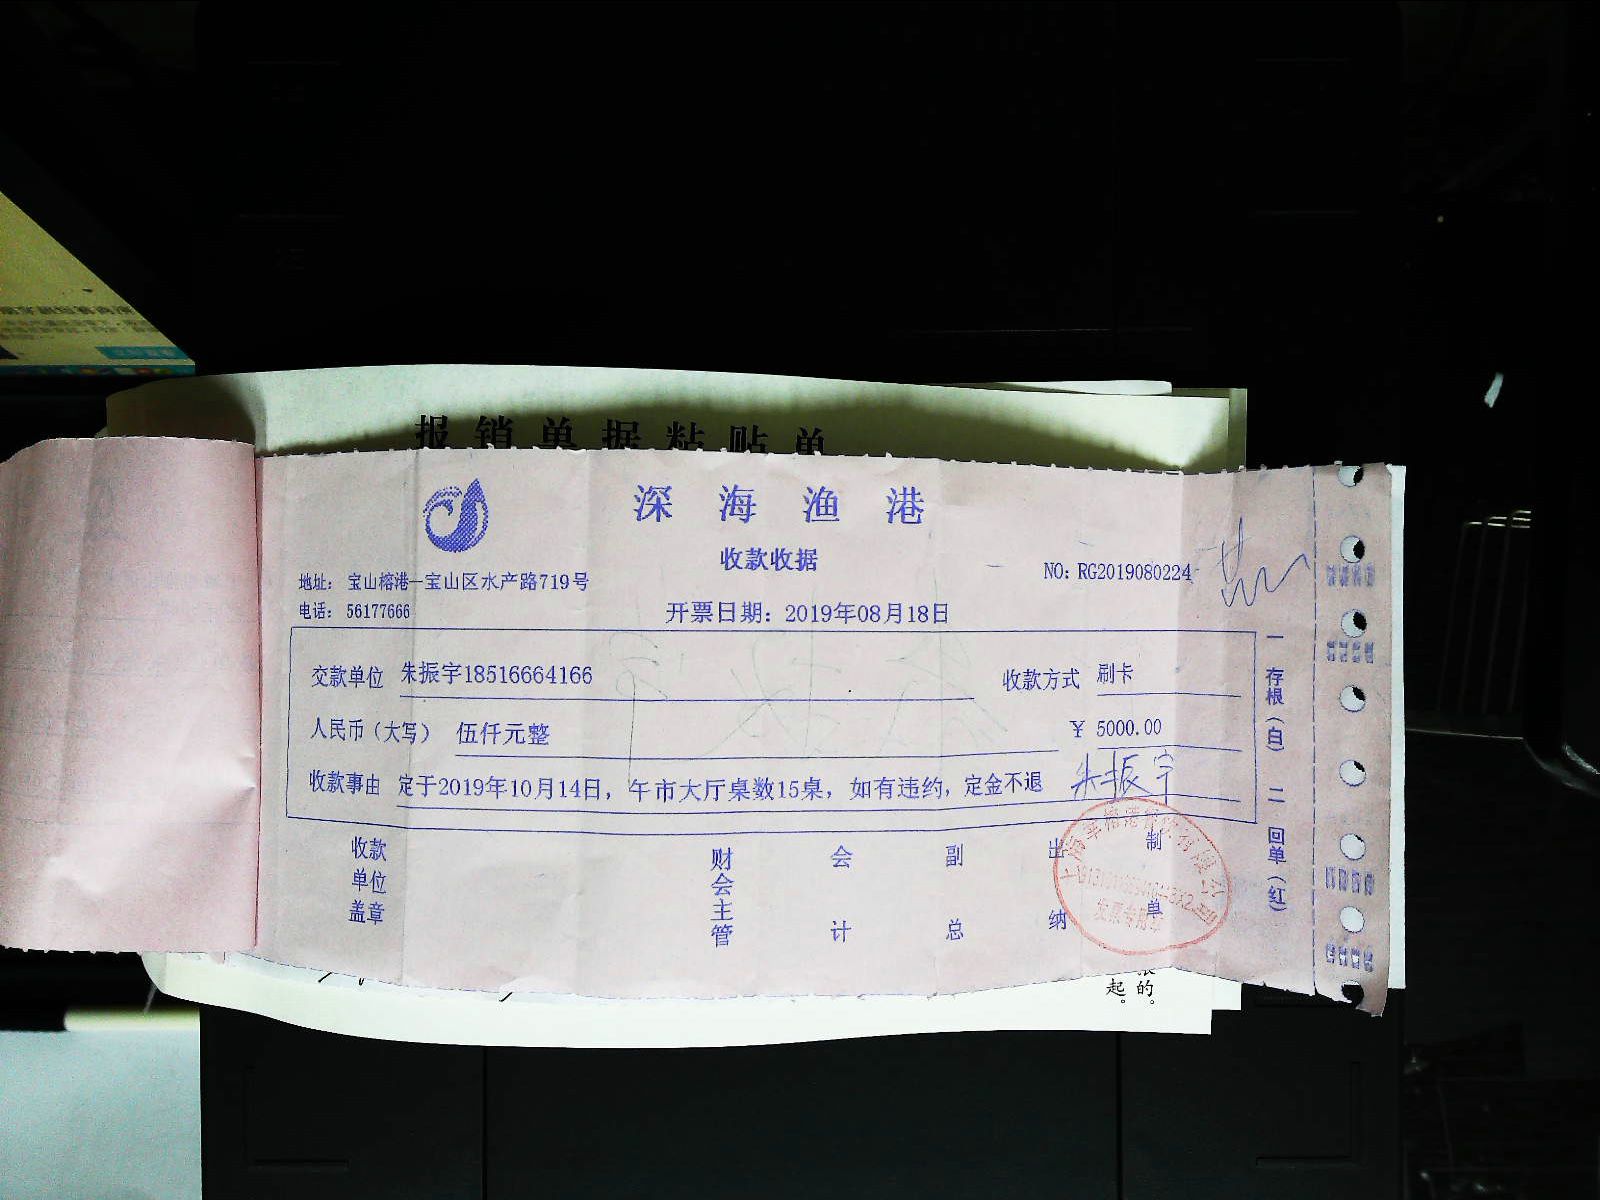 报销单据粘贴单
深海渔港
收款收据
地址： 宝山榕港—宝山区水产路719号
NO: RG2019080224
电话： 56177666
开票日期： 2019年08月18日
交款单位 朱振宇18516664166
收款方式 刷卡
人民币（大写） 伍仟元整
￥ 5000.00
收款事由 定于2019年10月14日，午市大厅桌数15桌，如有违约，定金不退
朱振宇
收款单位盖章
财会主管
会计
副总
出纳
制单
发票专用章
一 存根（白） 二 回单（红）
的。
起。